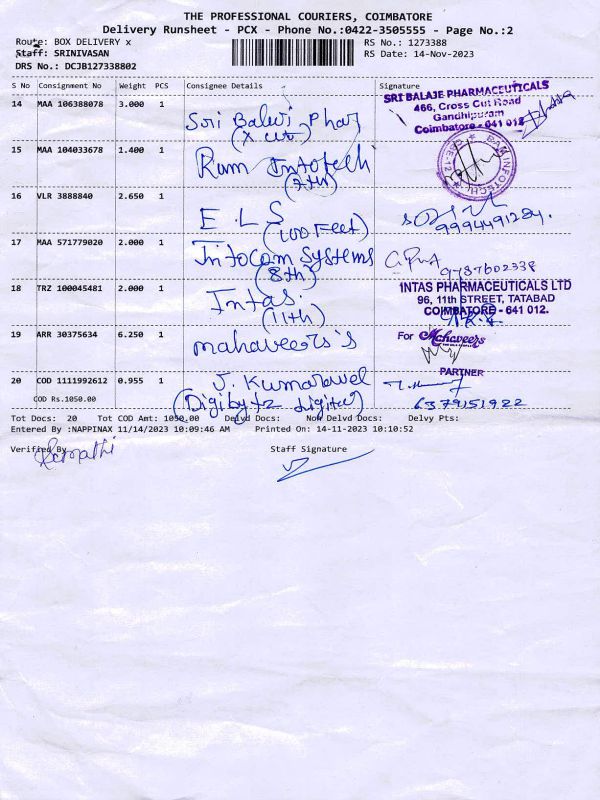 THE PROFESSIONAL COURIERS, COIMBATORE
Delivery Runsheet - PCX - Phone No.:0422-3505555 - Page No.:2
Route: BOX DELIVERY x
RS No.: 1273388
Staff: SRINIVASAN
RS Date: 14-Nov-2023
DRS No.: DCJB127338802
S No Consignment No Weight PCS Consignee Details Signature
14 MAA 106388078 3.000 1
Sri Balaji Phar
(X cut)
SRI BALAJE PHARMACEUTICALS
466, Cross Cut Road
Gandhipuram
Coimbatore - 641 012
15 MAA 104033678 1.400 1
Ram Infotech
(7th)
RAM INFOTECH
16 VLR 3888840 2.650 1
E.L.S
(100 Feet)
9994491284.
17 MAA 571779020 2.000 1
Infocom Systems
(8th)
9787602338
18 TRZ 100045481 2.000 1
Intas.
(11th)
INTAS PHARMACEUTICALS LTD
96, 11th STREET, TATABAD
COIMBATORE - 641 012.
19 ARR 30375634 6.250 1
mahaveers's
For Mahaveers
PARTNER
20 COD 1111992612 0.955 1
COD Rs.1050.00
J. Kumaravel
(Digibytz digital)
6379151922
Tot Docs: 20 Tot COD Amt: 1050.00 Delvd Docs: Non Delvd Docs: Delvy Pts:
Entered By :NAPPINAX 11/14/2023 10:09:46 AM Printed On: 14-11-2023 10:10:52
Verified By
Staff Signature
Remathi